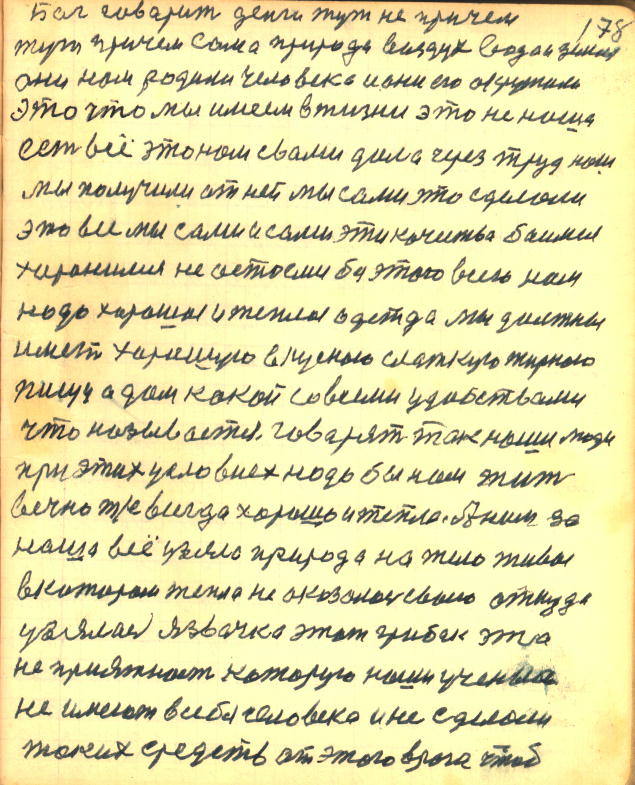 178
Бог говарит денги тут не причем
тут причем сама природа воздух вода и земля
они нам родили человека и они его окружили
Это что мы имеем в жизни это не наша
Есть всё это нам с вами дала через труд наш
мы получили от ней мы сами это сделали
это все мы сами и сами эти качества боимся
хоранилися не остоем бы этого всего нам
надо хорошая и теплая одежда мы должны
иметь хорошую вкусною сладкую жирною
пищу а дом какой со всеми удобствами
что называется. Говарят так наши люди
при этих условиех надо бы нам жит
вечно те всегда хорошо и тепла. А нам за
наша всё узяло природа на тело живое
в котором тепла не оказалос своего откуда
узялас язвачка этот грибок эта
не приятност которую наши ученыя
не имеют в себя человека и не сделали
таких средств от этого врага чтоб